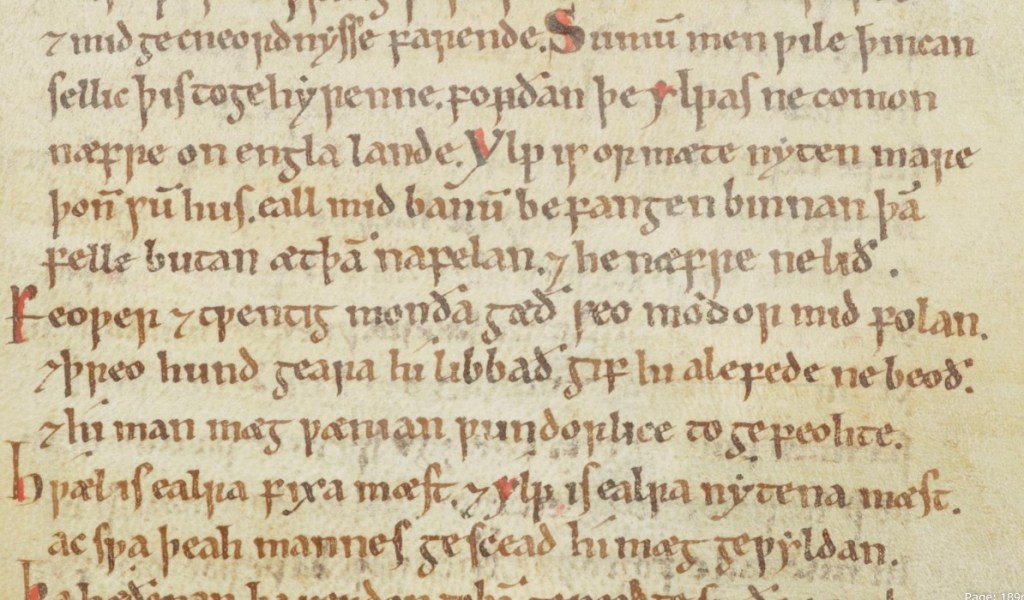 ⁊ mid gecneordnysse farende. Sumū men ƿile þincan
sellic þis to gehyrenne. forðan þe ylpas ne comon
næfre on engla lande. Ylp is ormæte nyten mare
þoñ sū hus. eall mid banū befangen binnan þā
felle butan æt þā nafelan. ⁊ he næfre ne lið.
Feoƿer ⁊ tƿentig monða gæð seo modor mid folan.
⁊ þreo hund geara hi libbað, gif hi alefede ne beoð.
⁊ hi man mæg ƿænian ƿundorlice to gefeohte.
Hƿæl is ealra fixa mæst. ⁊ ylp is ealra nytena mæst.
ac sƿa þeah mannes gescead hi mæg geƿyldan.
Page: 189r